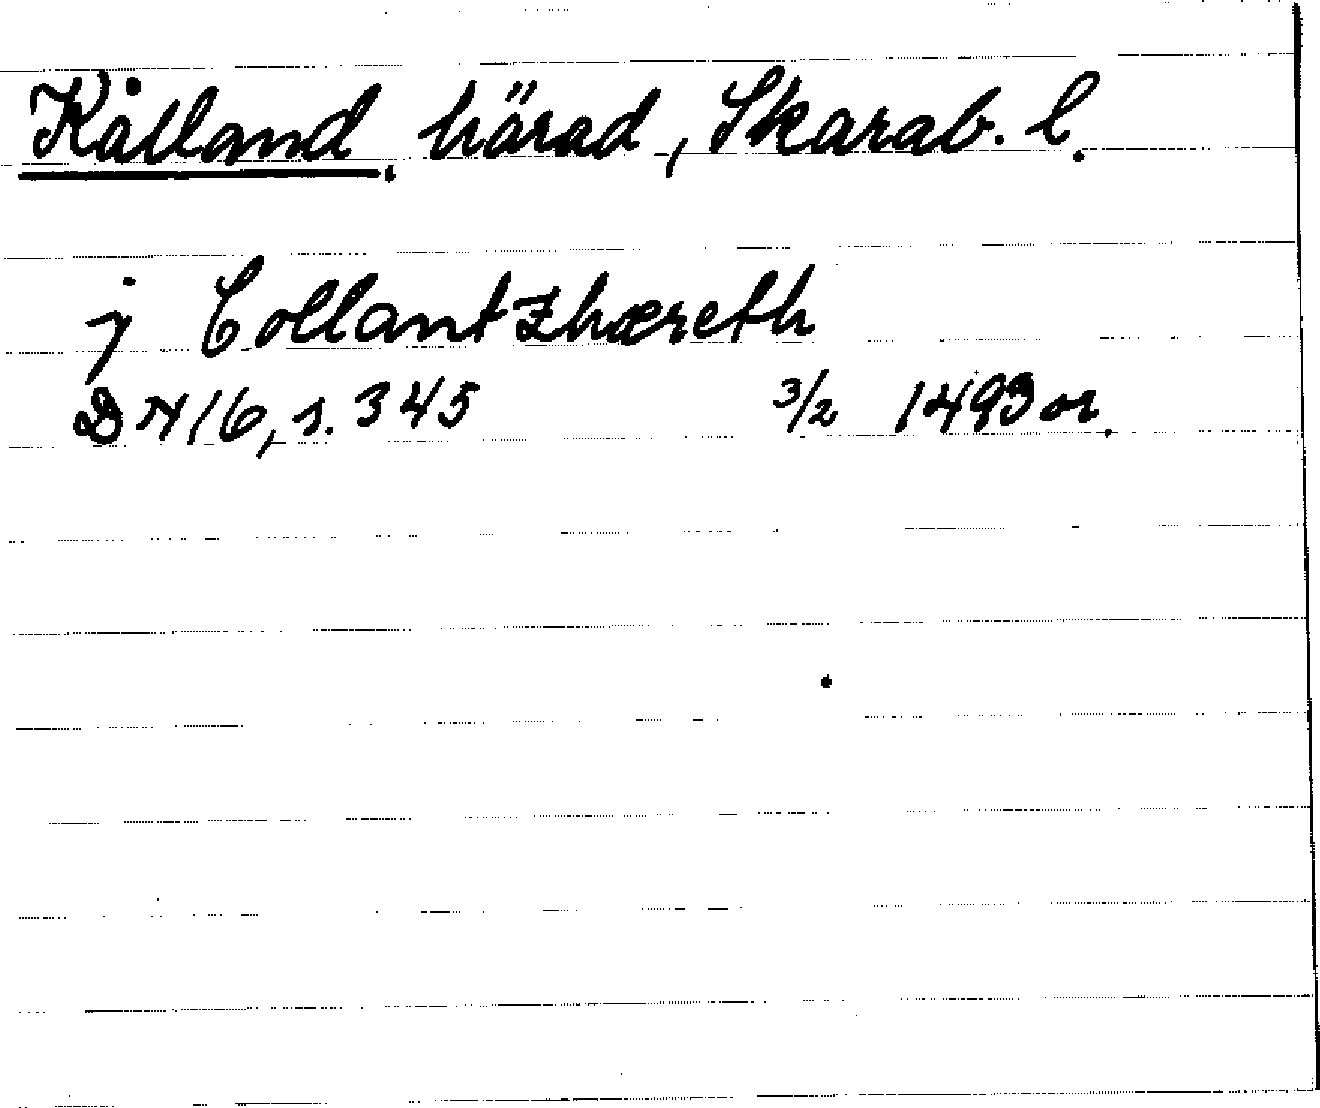 Kålland. härad, Skarab. l.
j Collantzhæreth
DN 16, s. 345 3/2 1493 or.